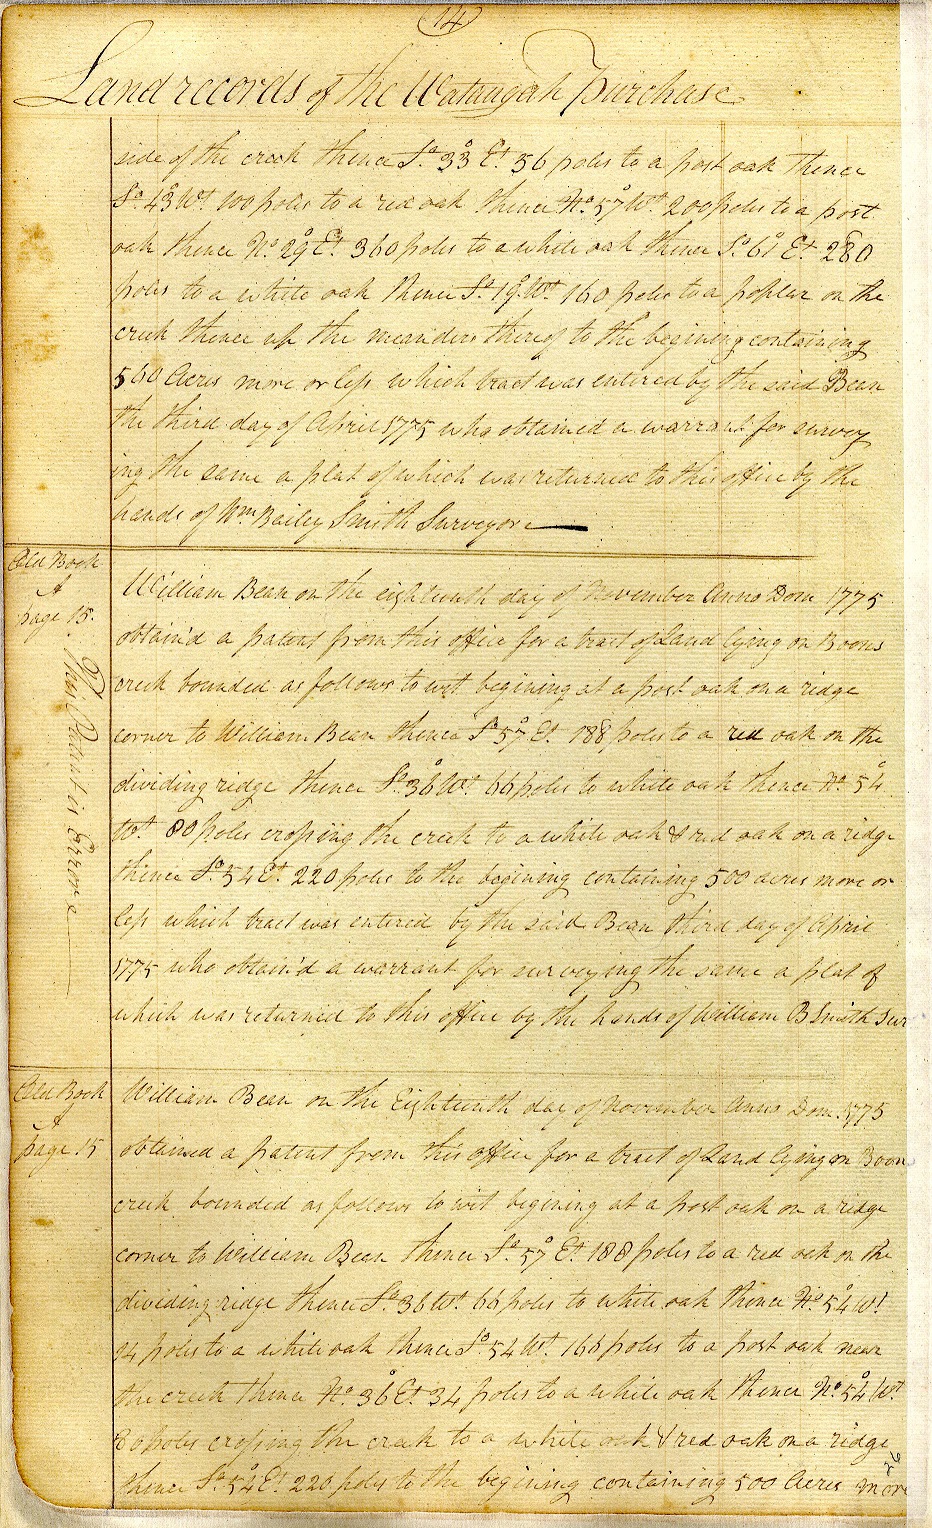 14
Land records of the Wataugah Purchase
side of the creek thence So. 33° Et. 56 poles to a post oak thence
So. 43° Wt. 100 poles to a red oak thence No. 57° Wt. 200 poles to a post
oak thence No. 29° Et. 360 poles to a white oak thence So. 61° Et. 280
poles to a white oak thence So. 19° Wt. 160 poles to a poplar on the
creek thence up the meanders thereof to the begining containing
560 Acres more or less which tract was entered by the said Bean
the third day of April 1775 who obtained a warrant for survey
ing the same a plat of which was returned to this office by the
hands of Wm Bailey Smith Surveyore
Old Book
A
page 15.
This Patent is Errore
William Bean on the eighteenth day of November Anno Dom 1775
obtain'd a patent from this office for a tract of Land lying on Boons
creek bounded as follows to wit begining at a post oak on a ridge
corner to William Bean thence So. 57° Et. 188 poles to a red oak on the
dividing ridge thence So. 36° Wt. 66 poles to white oak thence No. 54°
Wt. 80 poles crossing the creek to a white oak & red oak on a ridge
thence So. 54 Et. 220 poles to the begining containing 500 acres more or
less which tract was entered by the said Bean third day of April
1775 who obtain'd a warrant for surveying the same a plat of
which was returned to this office by the hands of William B Smith Sur
Old Book
A
page 15
William Bean on the Eighteenth day of November Anno Dom. 1775
obtained a patent from this office for a tract of Land lying on Boon
creek bounded as follows to wit begining at a post oak on a ridge
corner to William Bean thence So. 57° Et. 188 poles to a red oak on the
dividing ridge thence So. 36 Wt. 66 poles to white oak thence No. 54° Wt
94 poles to a white oak thence So. 54 Wt. 166 poles to a post oak near
the creek thence No. 36° Et. 34 poles to a white oak thence No. 54° Wt
80 poles crossing the creek to a white oak & red oak on a ridge
thence So. 54° Et. 220 poles to the begining containing 500 Acres more